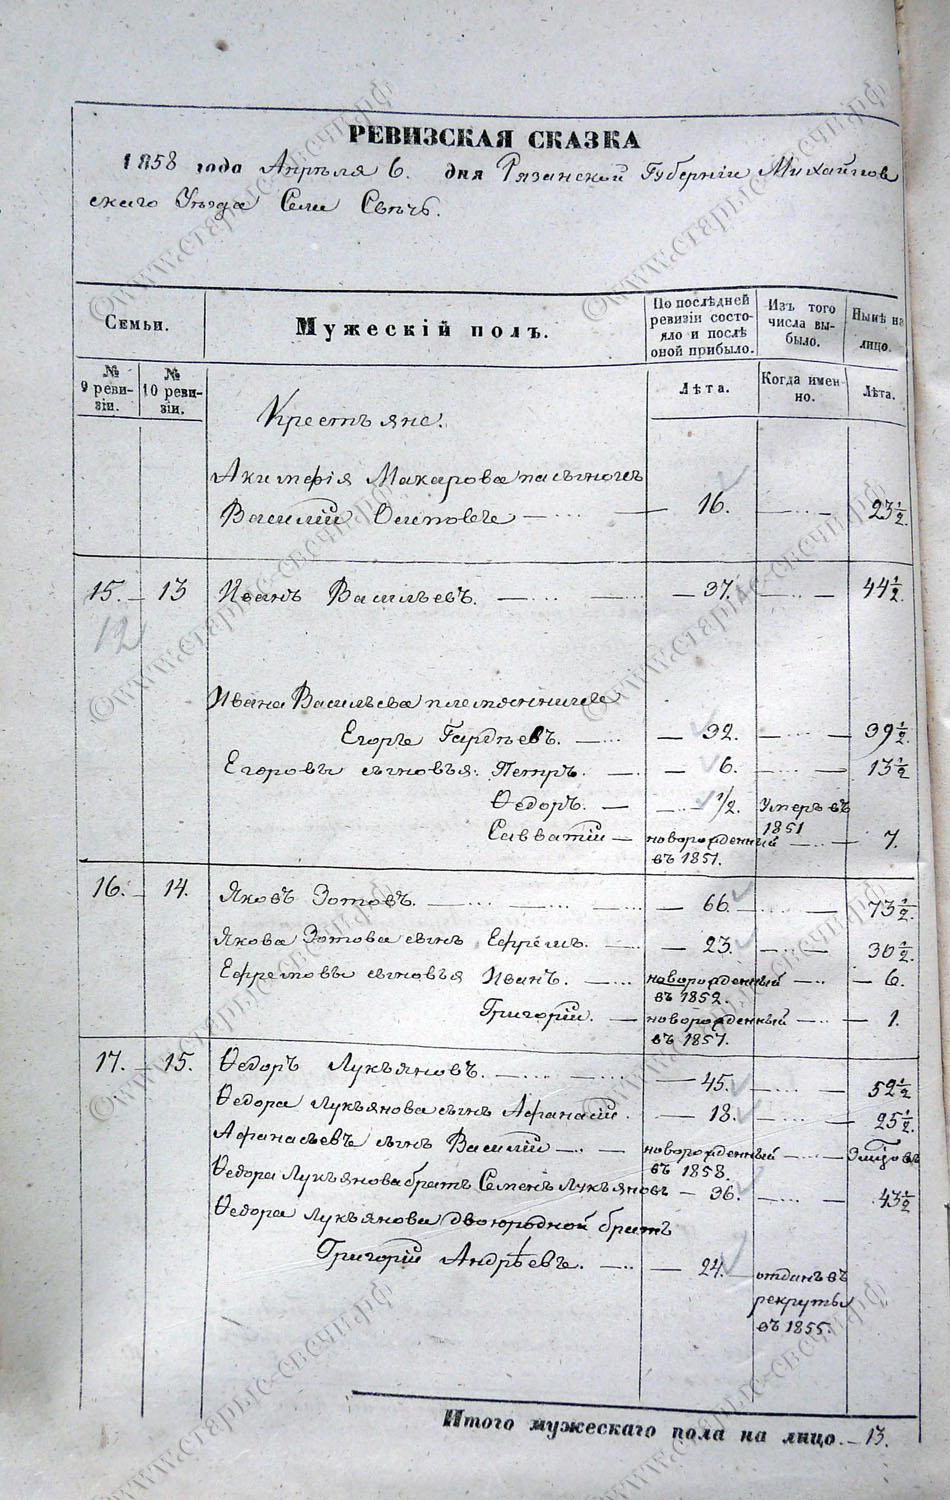 РЕВИЗСКАЯ СКАЗКА
1858 года Апрѣля 6. дня Рязанской Губерніи Михайлов
скаго Уѣзда Села Свѣчь.
Семьи.
Мужескій полъ.
По послѣдней ревизіи состояло и послѣ оной прибыло.
Изъ того числа выбыло.
Нынѣ на лицо.
№ 9 ревизіи.
№ 10 ревизіи.
Лѣта.
Когда именно.
Лѣта.
Крестьяне.
Акимфія Макарова пасынокъ
Василій Осиповъ — 16. — 23½.
15. 13 Иванъ Васильевъ. — 37. — 44½.
12
Ивана Васильева племянникъ
Егоръ Гордѣевъ. — 32. — 39½.
Егоровы сыновья: Петръ. — 6. — 13½
Ѳедоръ. — ½. Умеръ въ 1851
Савватій — новорожденный въ 1851. — 7.
16. 14. Яковъ Зотовъ. — 66. — 73½.
Якова Зотова сынъ Ефремъ. — 23. — 30½.
Ефремовы сыновья Иванъ. — новорожденный въ 1852. — 6.
Григорій. — новорожденный въ 1857. — 1.
17. 15. Ѳедоръ Лукьяновъ. — 45. — 52½
Ѳедора Лукьянова сынъ Афанасій. — 18. — 25½.
Афанасьевъ сынъ Василій — новорожденный въ 1858. —
Ѳедора Лукьянова братъ Семенъ Лукьяновъ — 36. — 43½
Ѳедора Лукьянова двоюродной братъ
Григорій Андрѣевъ. — 24. отданъ въ рекруты въ 1855.
Итого мужескаго пола на лицо. — 13.
©www.старыс-свсчи.рф